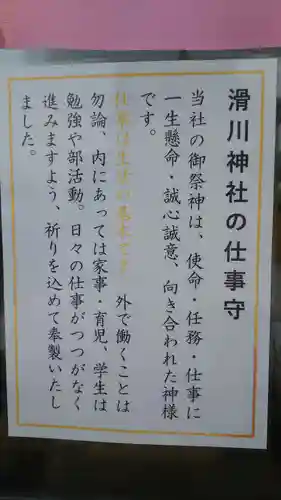 滑川神社の仕事守
当社の御祭神は、使命・任務・仕事に
一生懸命・誠心誠意、向き合われた神様
です。
仕事は生活の基本です　外で働くことは
勿論、内にあっては家事・育児、学生は
勉強や部活動。日々の仕事がつつがなく
進みますよう、祈りを込めて奉製いたし
ました。